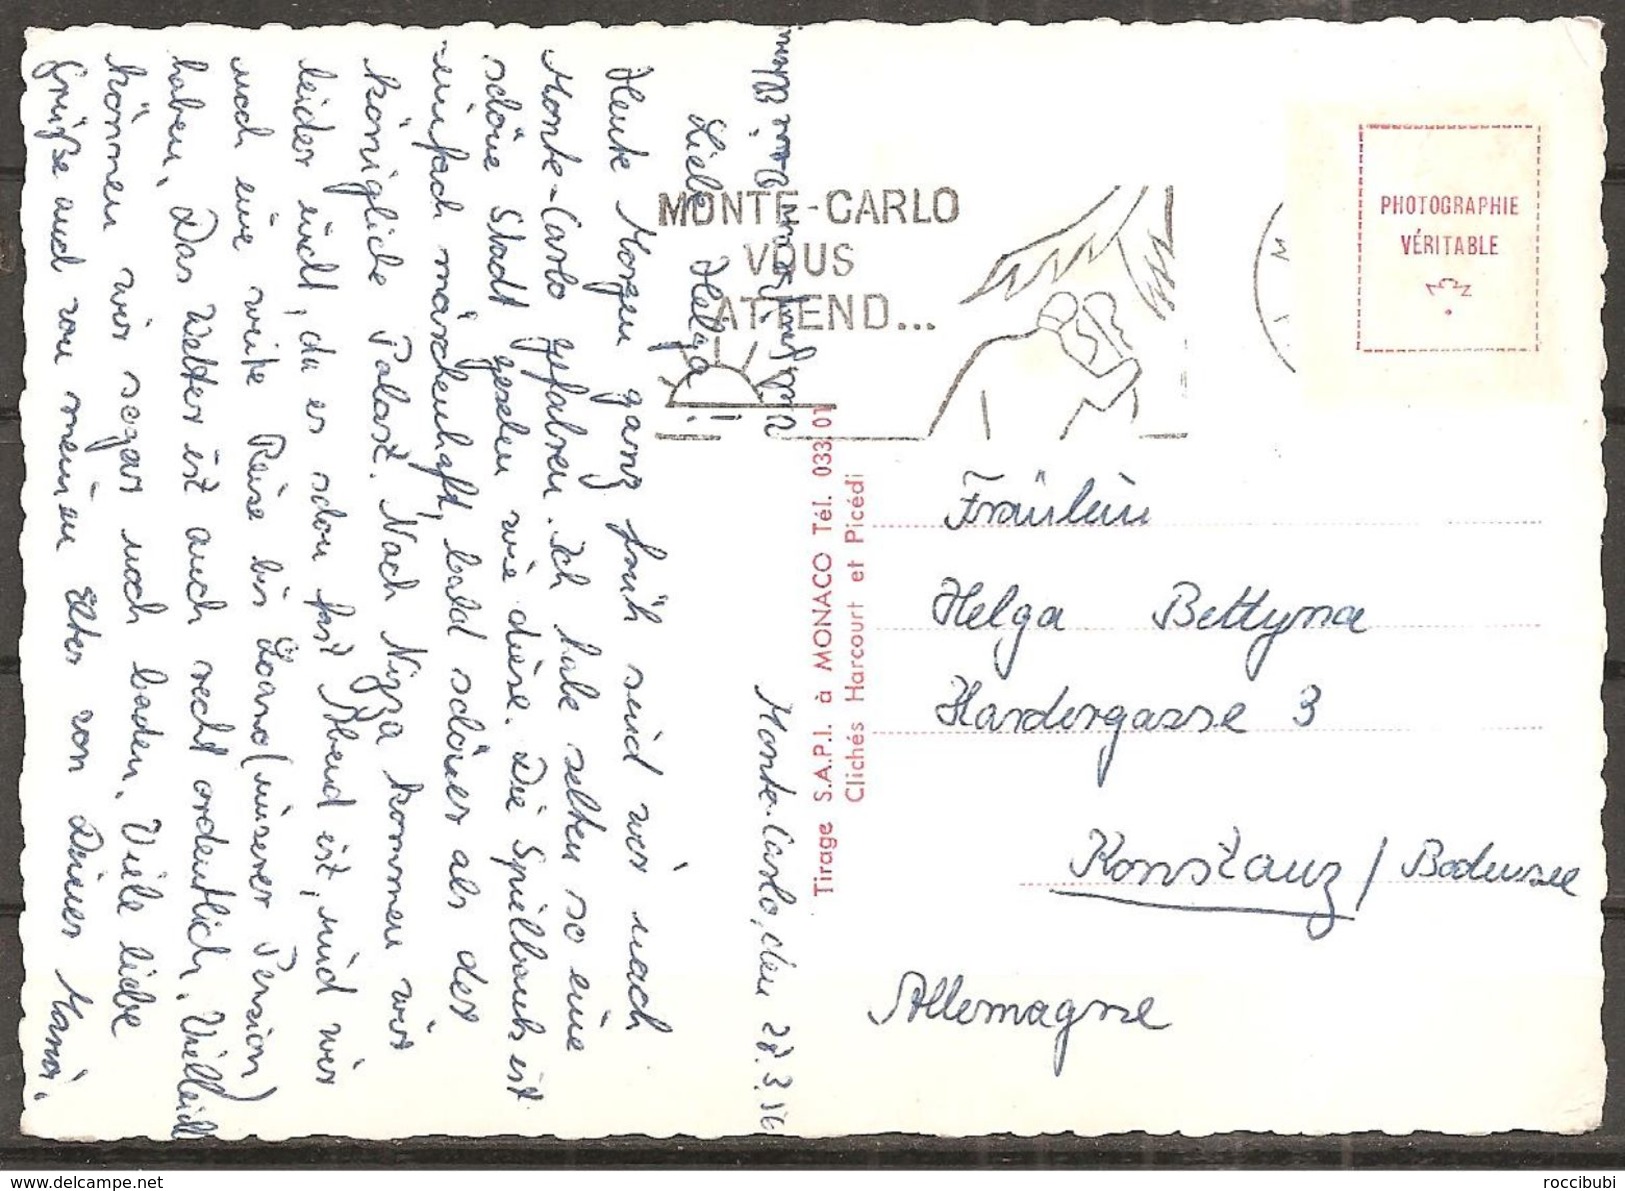 Monte-Carlo, den 28.3.56
Liebe Helga!
Heute Morgen ganz früh sind wir nach
Monte-Carlo gefahren. Ich habe selten so eine
schöne Stadt gesehen wie diese. Die Spielbank ist
einfach märchenhaft, bald schöner als der
königliche Palast. Nach Nizza kommen wir
leider nicht, da es schon fast Abend ist, und wir
noch eine weite Reise bis Loano (unserer Pension)
haben. Das Wetter ist auch recht ordentlich. Vielleicht
können wir sogar noch baden. Viele liebe
Grüße auch von meinen Eltern von Deiner
MONTE-CARLO
VOUS
ATTEND...
PHOTOGRAPHIE
VÉRITABLE
Tirage S.A.P.I. à MONACO Tél. 033.01
Clichés Harcourt et Picédi
Fräulein
Helga Bettyna
Hardergasse 3
Konstanz / Bodensee
Allemagne
delcampe.net
roccibubi